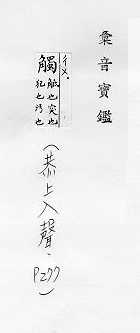 彙音寶鑑
觸
觝也突也
犯也污也
(恭上入聲、P277)